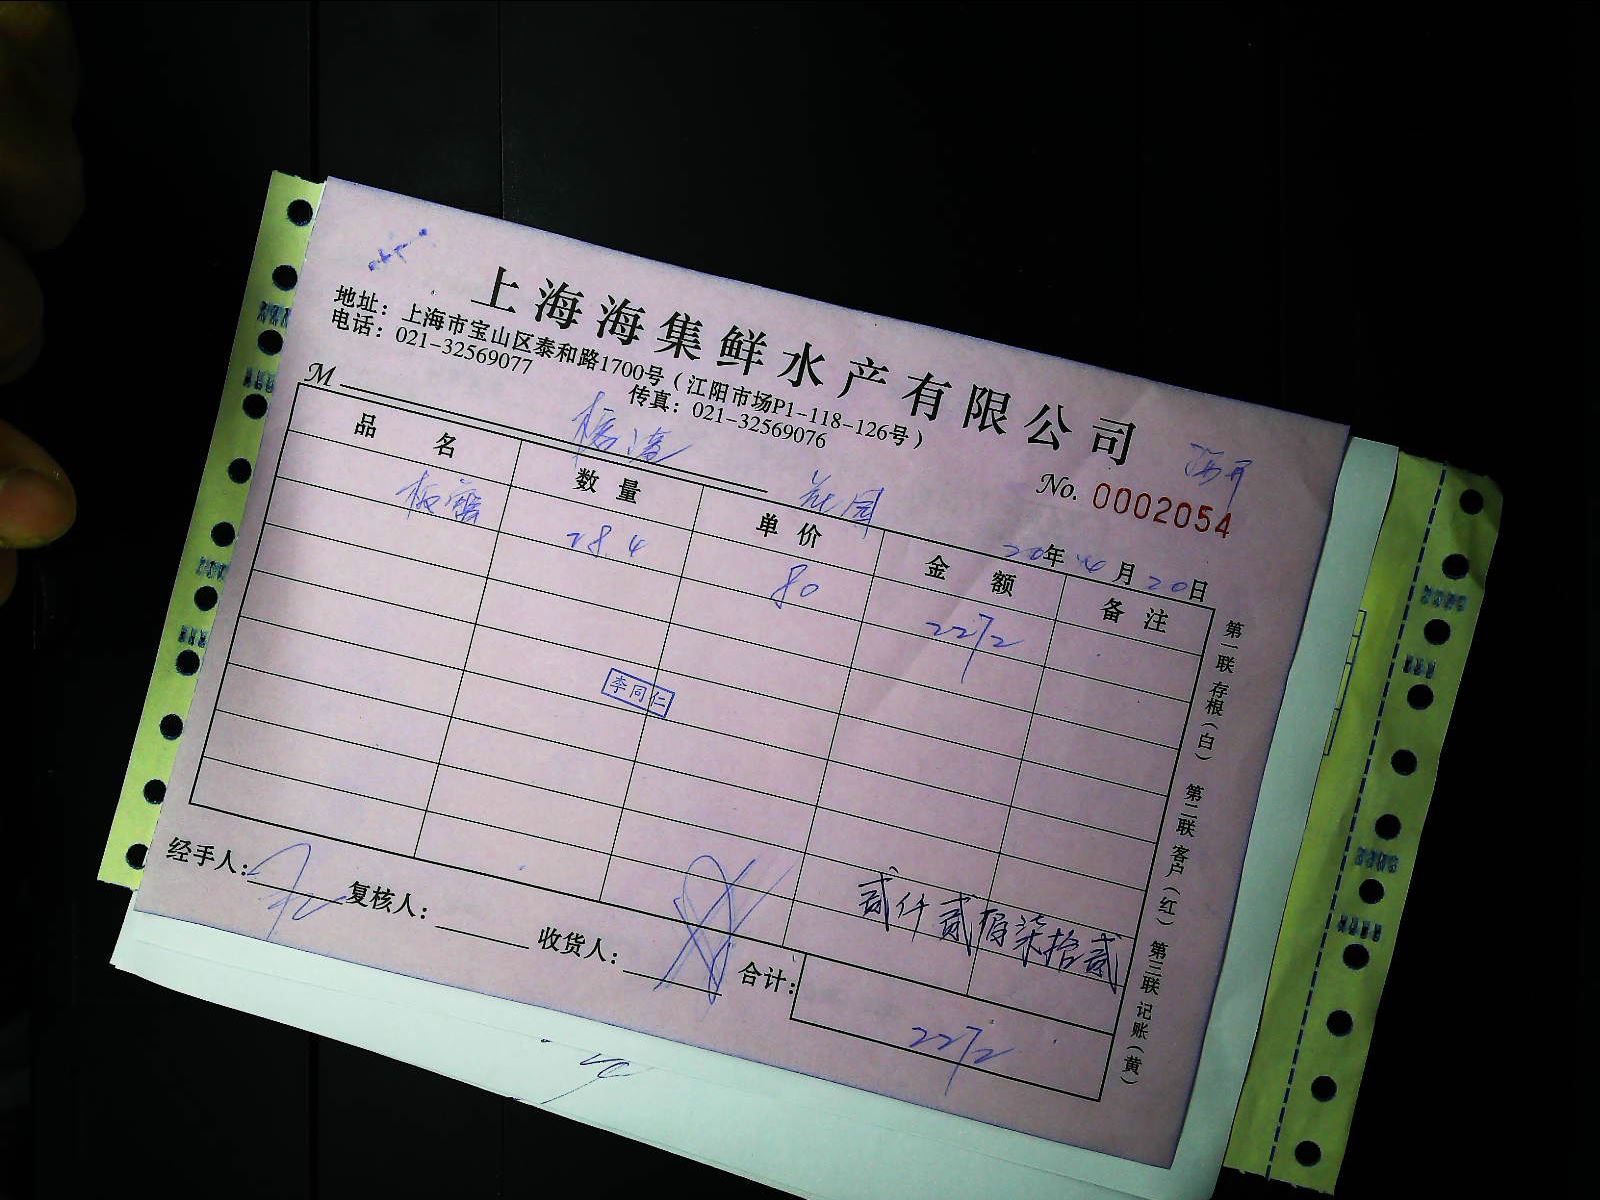 上海海集鲜水产有限公司
地址：上海市宝山区泰和路1700号（江阳市场P1-118-126号）
电话：021-32569077 传真：021-32569076
M
No. 0002054
20年4月20日
品名 数量 单价 金额 备注
284 80 2272
李同仁
贰仟贰佰柒拾贰
合计： 2272
经手人： 复核人： 收货人：
第一联 存根（白） 第二联 客户（红） 第三联 记账（黄）